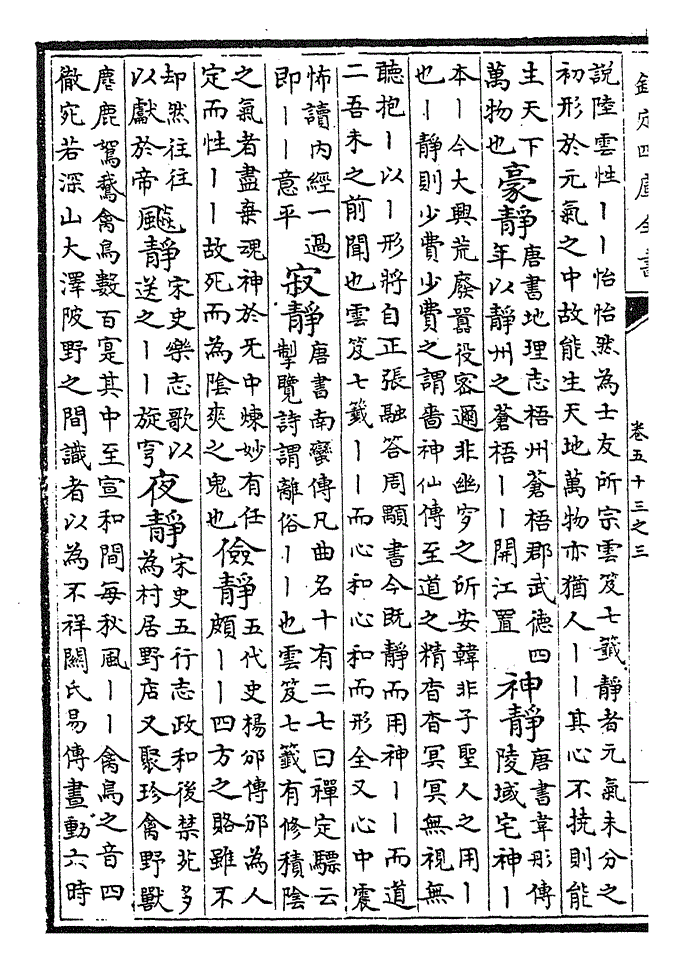 欽定四庫全書
卷五十三之三
說陸雲性丨丨怡怡然為士友所宗雲笈七籖靜者元氣未分之
初形於元氣之中故能生天地萬物亦猶人丨丨其心不撓則能
生天下
萬物也
豪靜
唐書地理志梧州蒼梧郡武德四
年以靜州之蒼梧丨丨開江置
神靜
唐書韋彤傳
陵域宅神丨
本丨今大興荒廢囂役容邇非幽穸之所安韓非子聖人之用丨
也丨靜則少費少費之謂嗇神仙傳至道之精杳杳冥冥無視無
聽抱丨以丨形將自正張融答周顒書今既靜而用神丨丨而道
二吾未之前聞也雲笈七籖丨丨而心和心和而形全又心中震
怖讀內經一過
即丨丨意平
寂靜
唐書南蠻傳凡曲名十有二七曰禪定驃云
掣覽詩謂離俗丨丨也雲笈七籖有修積陰
之氣者盡棄魂神於旡中煉妙有任
定而性丨丨故死而為陰爽之鬼也
儉靜
五代史楊邠傳邠為人
頗丨丨四方之賂雖不
却然往往
以獻於帝
颷靜
宋史樂志歌以
送之丨丨旋穹
夜靜
宋史五行志政和後禁苑多
為村居野店又聚珍禽野獸
麈鹿鴐鵝禽鳥數百寔其中至宣和間每秋風丨丨禽鳥之音四
徹宛若深山大澤陂野之間識者以為不祥關氏易傳晝動六時